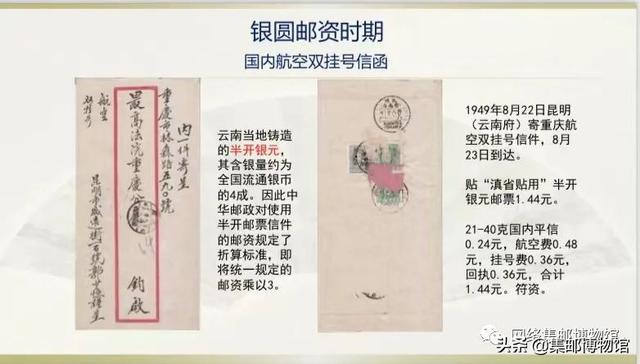 银圆邮资时期
国内航空双挂号信函
航空
双挂号
内一件寄呈
重慶市林森路五九〇號
最高法院重慶
鈞啟
云南当地铸造
的半开银元，
其含银量约为
全国流通银币
的4成。因此中
华邮政对使用
半开邮票信件
的邮资规定了
折算标准，即
将统一规定的
邮资乘以3。
1949年8月22日昆明
（云南府）寄重庆航
空双挂号信件，8月
23日到达。
贴“滇省贴用”半开
银元邮票1.44元。
21-40克国内平信
0.24元，航空费0.48
元，挂号费0.36元，
回执0.36元，合计
1.44元。符资。
网络集邮博物馆
头条@集邮博物馆